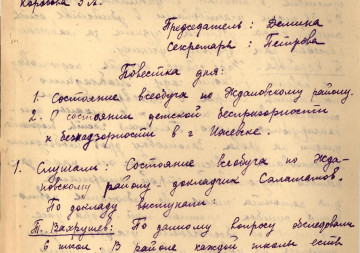 Коротова З.А.
Председатель: Демина
Секретарь: Петрова
Повестка дня:
1. Состояние всеобуча по Ждановскому району.
2. О состоянии детской беспризорности
и безнадзорности в г Ижевке.
1. Слушали: Состояние всеобуча по Жда-
новскому району докладчик Саламатов.
По докладу выступали:
Т. Вахрушев: По данному вопросу обследовали
6 школ. В районе каждой школы есть